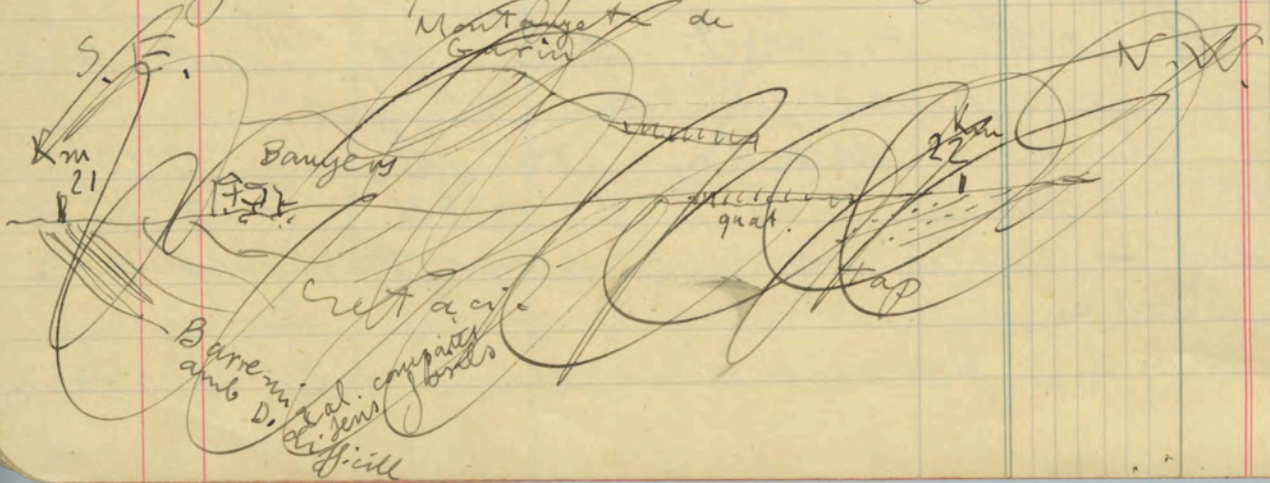 Montanyeta de
Garín
S. E.
N. W.
Km
21
Banyers
Km
22
quat.
tap
Cretaci.
Barremi
amb D.
cal compacte
sens fòssils
difficill